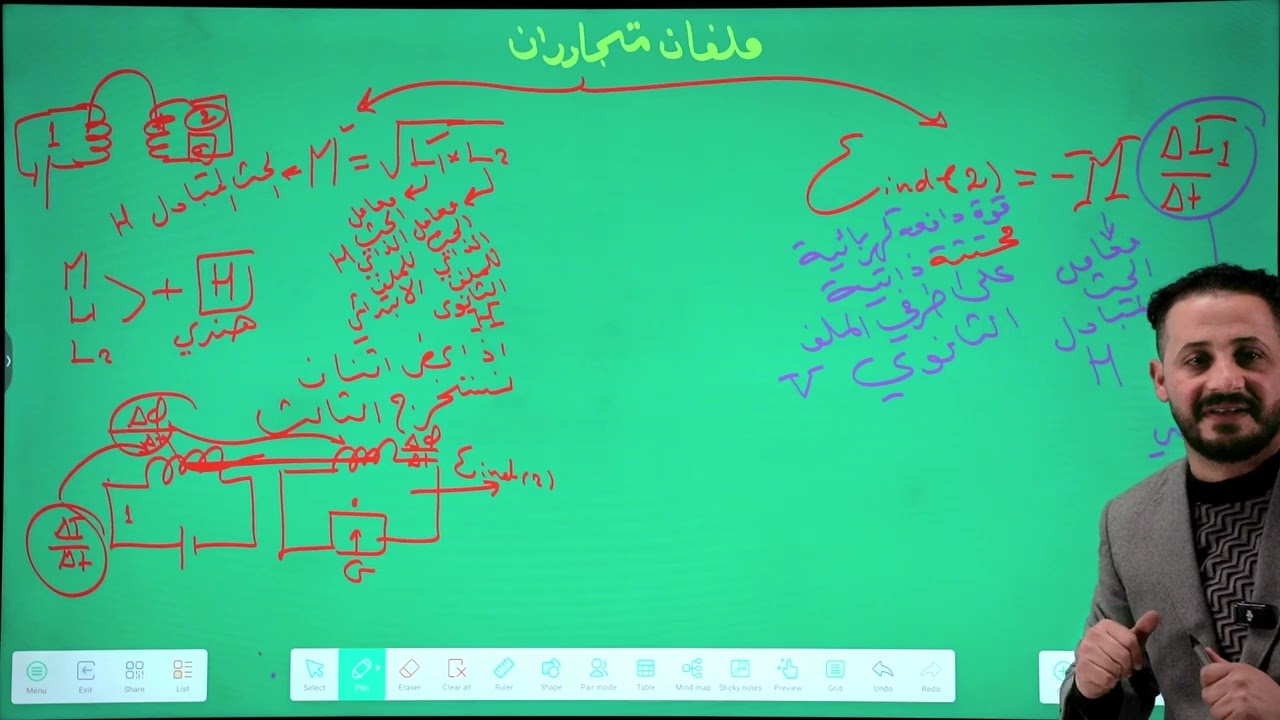 ملفان متجاوران
1
2
G
الحث المتبادل H
M = √L1 * L2
معامل الحث الذاتي للملف الابتدائي H
معامل الحث الذاتي للملف الثانوي H
M
L1
L2
+ H
هنري
اذا عرض اثنان
نستخرج الثالث
Δφ/Δt
Δφ/Δt
εind(2)
1
ΔI/Δt
G
εind(2) = -M ΔI1/Δt
قوة دافعه كهربائية
محتثة ذاتية
على طرفي الملف
الثانوي V
معامل
الحث
المتبادل
H
Menu
Exit
Share
List
Select
Pen
Eraser
Clear all
Ruler
Shape
Pair mode
Table
Mind map
Sticky notes
Preview
Grid
Undo
Redo